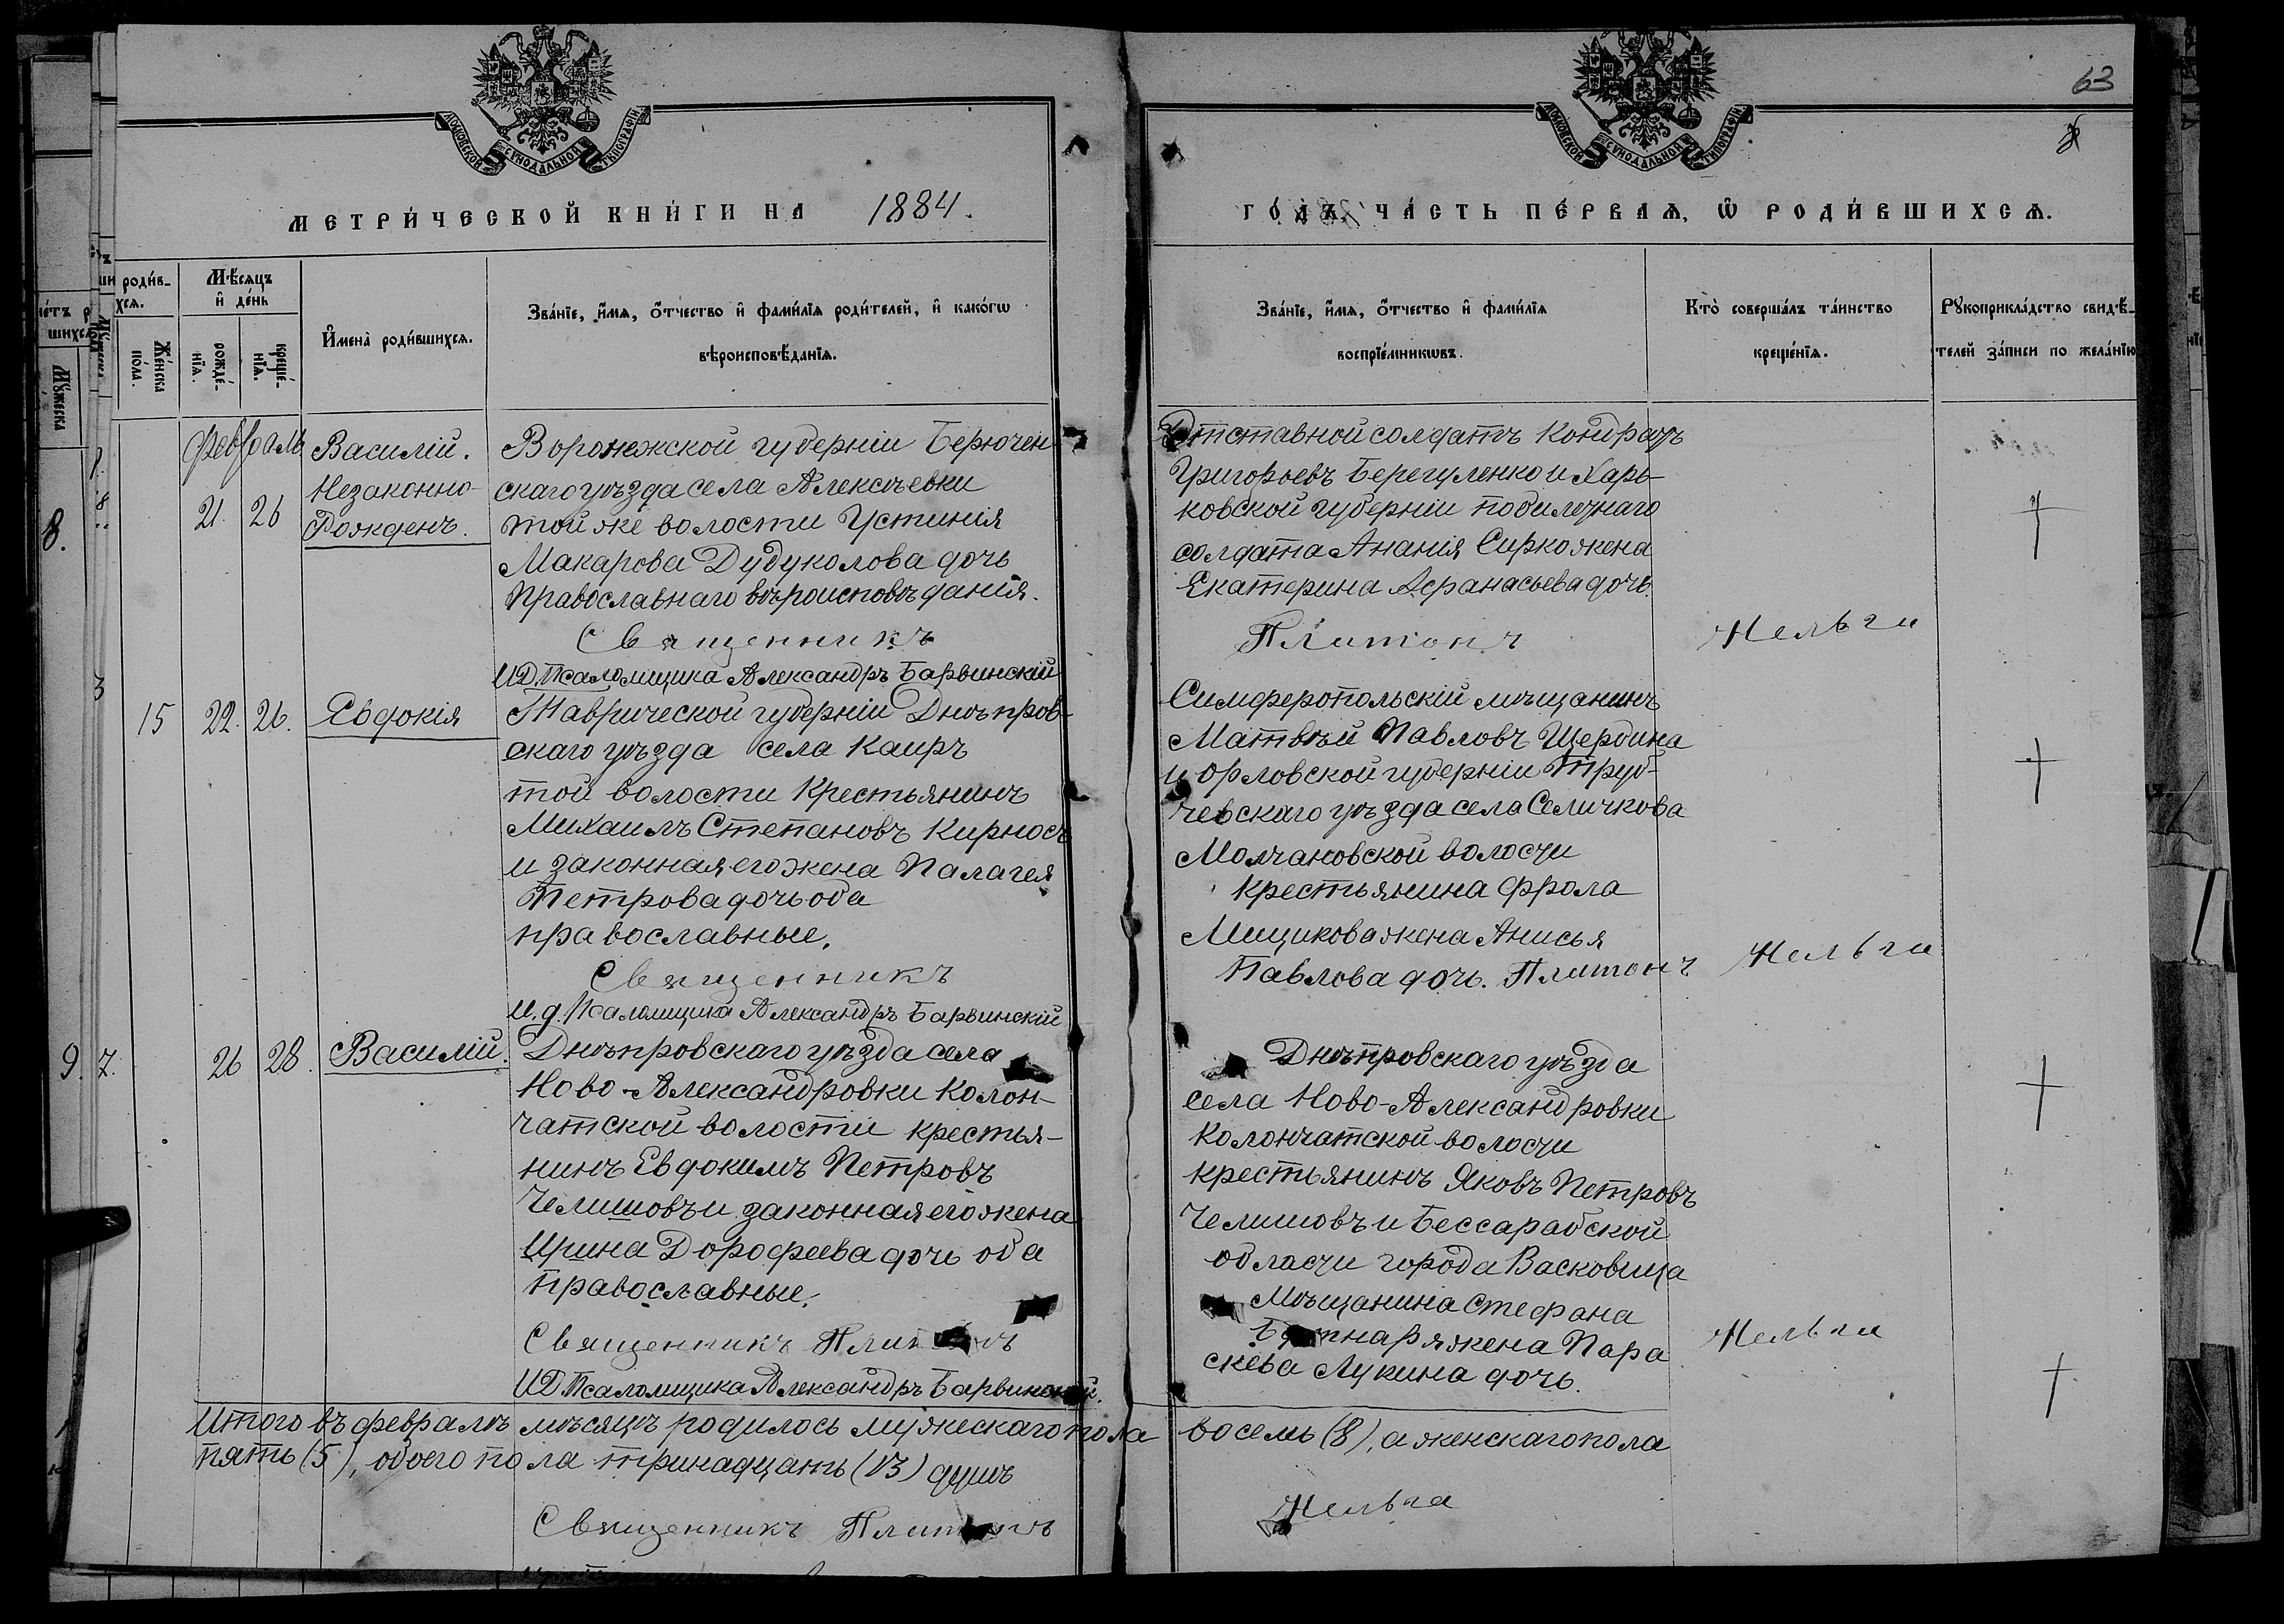 63
МОСКОВСКОЙ СѴНОДАЛЬНОЙ ТИПОГРАФІИ
МОСКОВСКОЙ СѴНОДАЛЬНОЙ ТИПОГРАФІИ
МЕТРИ́ЧЕСКОЙ КНИ́ГИ НА 1884.
ГО́ДЪ, ЧА́СТЬ ПЕ́РВАѦ, Ѡ҆ РОДИ́ВШИХСѦ.
роди́в-
хсѧ.
Же́нска по́ла.
Мѣ́сѧцъ
и҆ де́нь
рожде́-нїѧ.
креще́-нїѧ.
И҆мена̀ роди́вшихсѧ.
Зва́нїе, и҆́мѧ, ѻ҆́тчество и҆ фами́лїѧ роди́телей, и҆ како́гѡ
вѣроисповѣ́данїѧ.
Зва́нїе, и҆́мѧ, ѻ҆́тчество и҆ фами́лїѧ
воспрїе́мникѡвъ.
Кто̀ соверша́лъ та́инство
креще́нїѧ.
Рꙋкоприкла́дство свидѣ́-
телей за́писи по жела́нїю
Мꙋ́жеска
8.
Февраль
21 26
Василій.
Незаконно-
Рожденъ.
Воронежской губерніи Берючен
скаго уѣзда села Алексѣевки
той же волости Устинія
Макарова Дудуколова дочь
Православнаго вѣроисповѣданія.
Священникъ
И.Д. Псаломщика Александръ Барвинскій
Отставной солдатъ Кондратъ
Григорьевъ Берегуленко и Харь-
ковской губерніи побилетнаго
солдата Ананія Сирко жена
Екатерина Афанасьева дочь.
Платонъ
Нельга
15 22. 26.
Евдокія
Таврической губерніи Днѣпров-
скаго уѣзда села Каиръ
той волости Крестьянинъ
Михаилъ Степановъ Кирносъ
и законная его жена Палагея
Петрова дочь оба
православные.
Священникъ
И.д. Псаломщика Александръ Барвинскій
Симферопольскій мѣщанинъ
Матвѣй Павловъ Щербина
и Орловской губерніи Труб-
чевскаго уѣзда села Селичкова
Молчановской волости
крестьянина Фрола
Мищикова жена Анисья
Павлова дочь. Платонъ
Нельга
9. 7. 26 28.
Василій.
Днѣпровскаго уѣзда села
Ново-Александровки Колон-
чатской волости крестья-
нинъ Евдокимъ Петровъ
Челишовъ и законная его жена
Ирина Дорофеева дочь оба
православные.
Священникъ Платонъ
И.Д. Псаломщика Александръ Барвинскій.
Днѣпровскаго уѣзда
села Ново-Александровки
Колончатской волости
крестьянинъ Яковъ Петровъ
Челишовъ и Бессарабской
области города Васковица
Мѣщанина Стефана
жена Пара
скева Лукина дочь.
Нельга
Итого въ февралѣ мѣсяцѣ родилось мужескаго пола восемь (8), а женскаго пола
пять (5), обоего пола тринадцать (13) душъ
Священникъ Платонъ
Нельга